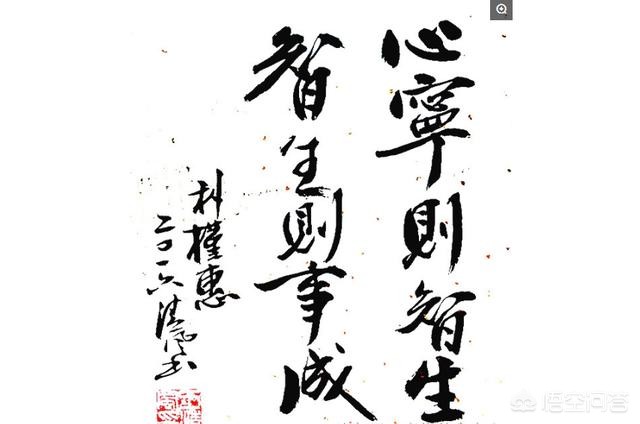 心寧則智生
智生則事成
朴槿惠
二〇一六
悟空问答